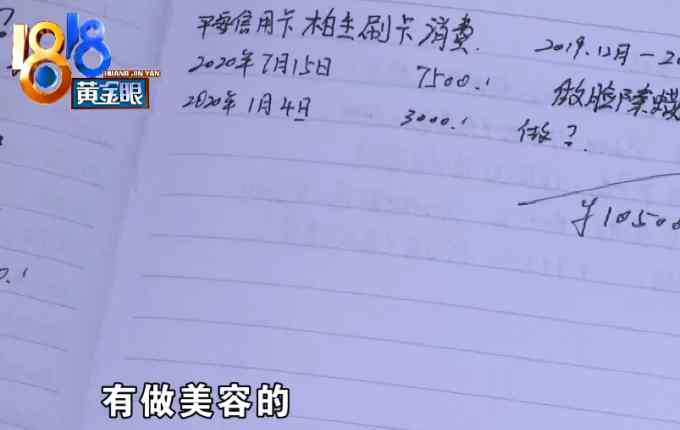 1818
HUANG JIN YAN
黄金眼
信用卡 柏兰刷卡消费
2019.12月一20
2020年7月15日 7500.
做脸除
2020年1月4日 3000.
做?
¥10500
有做美容的